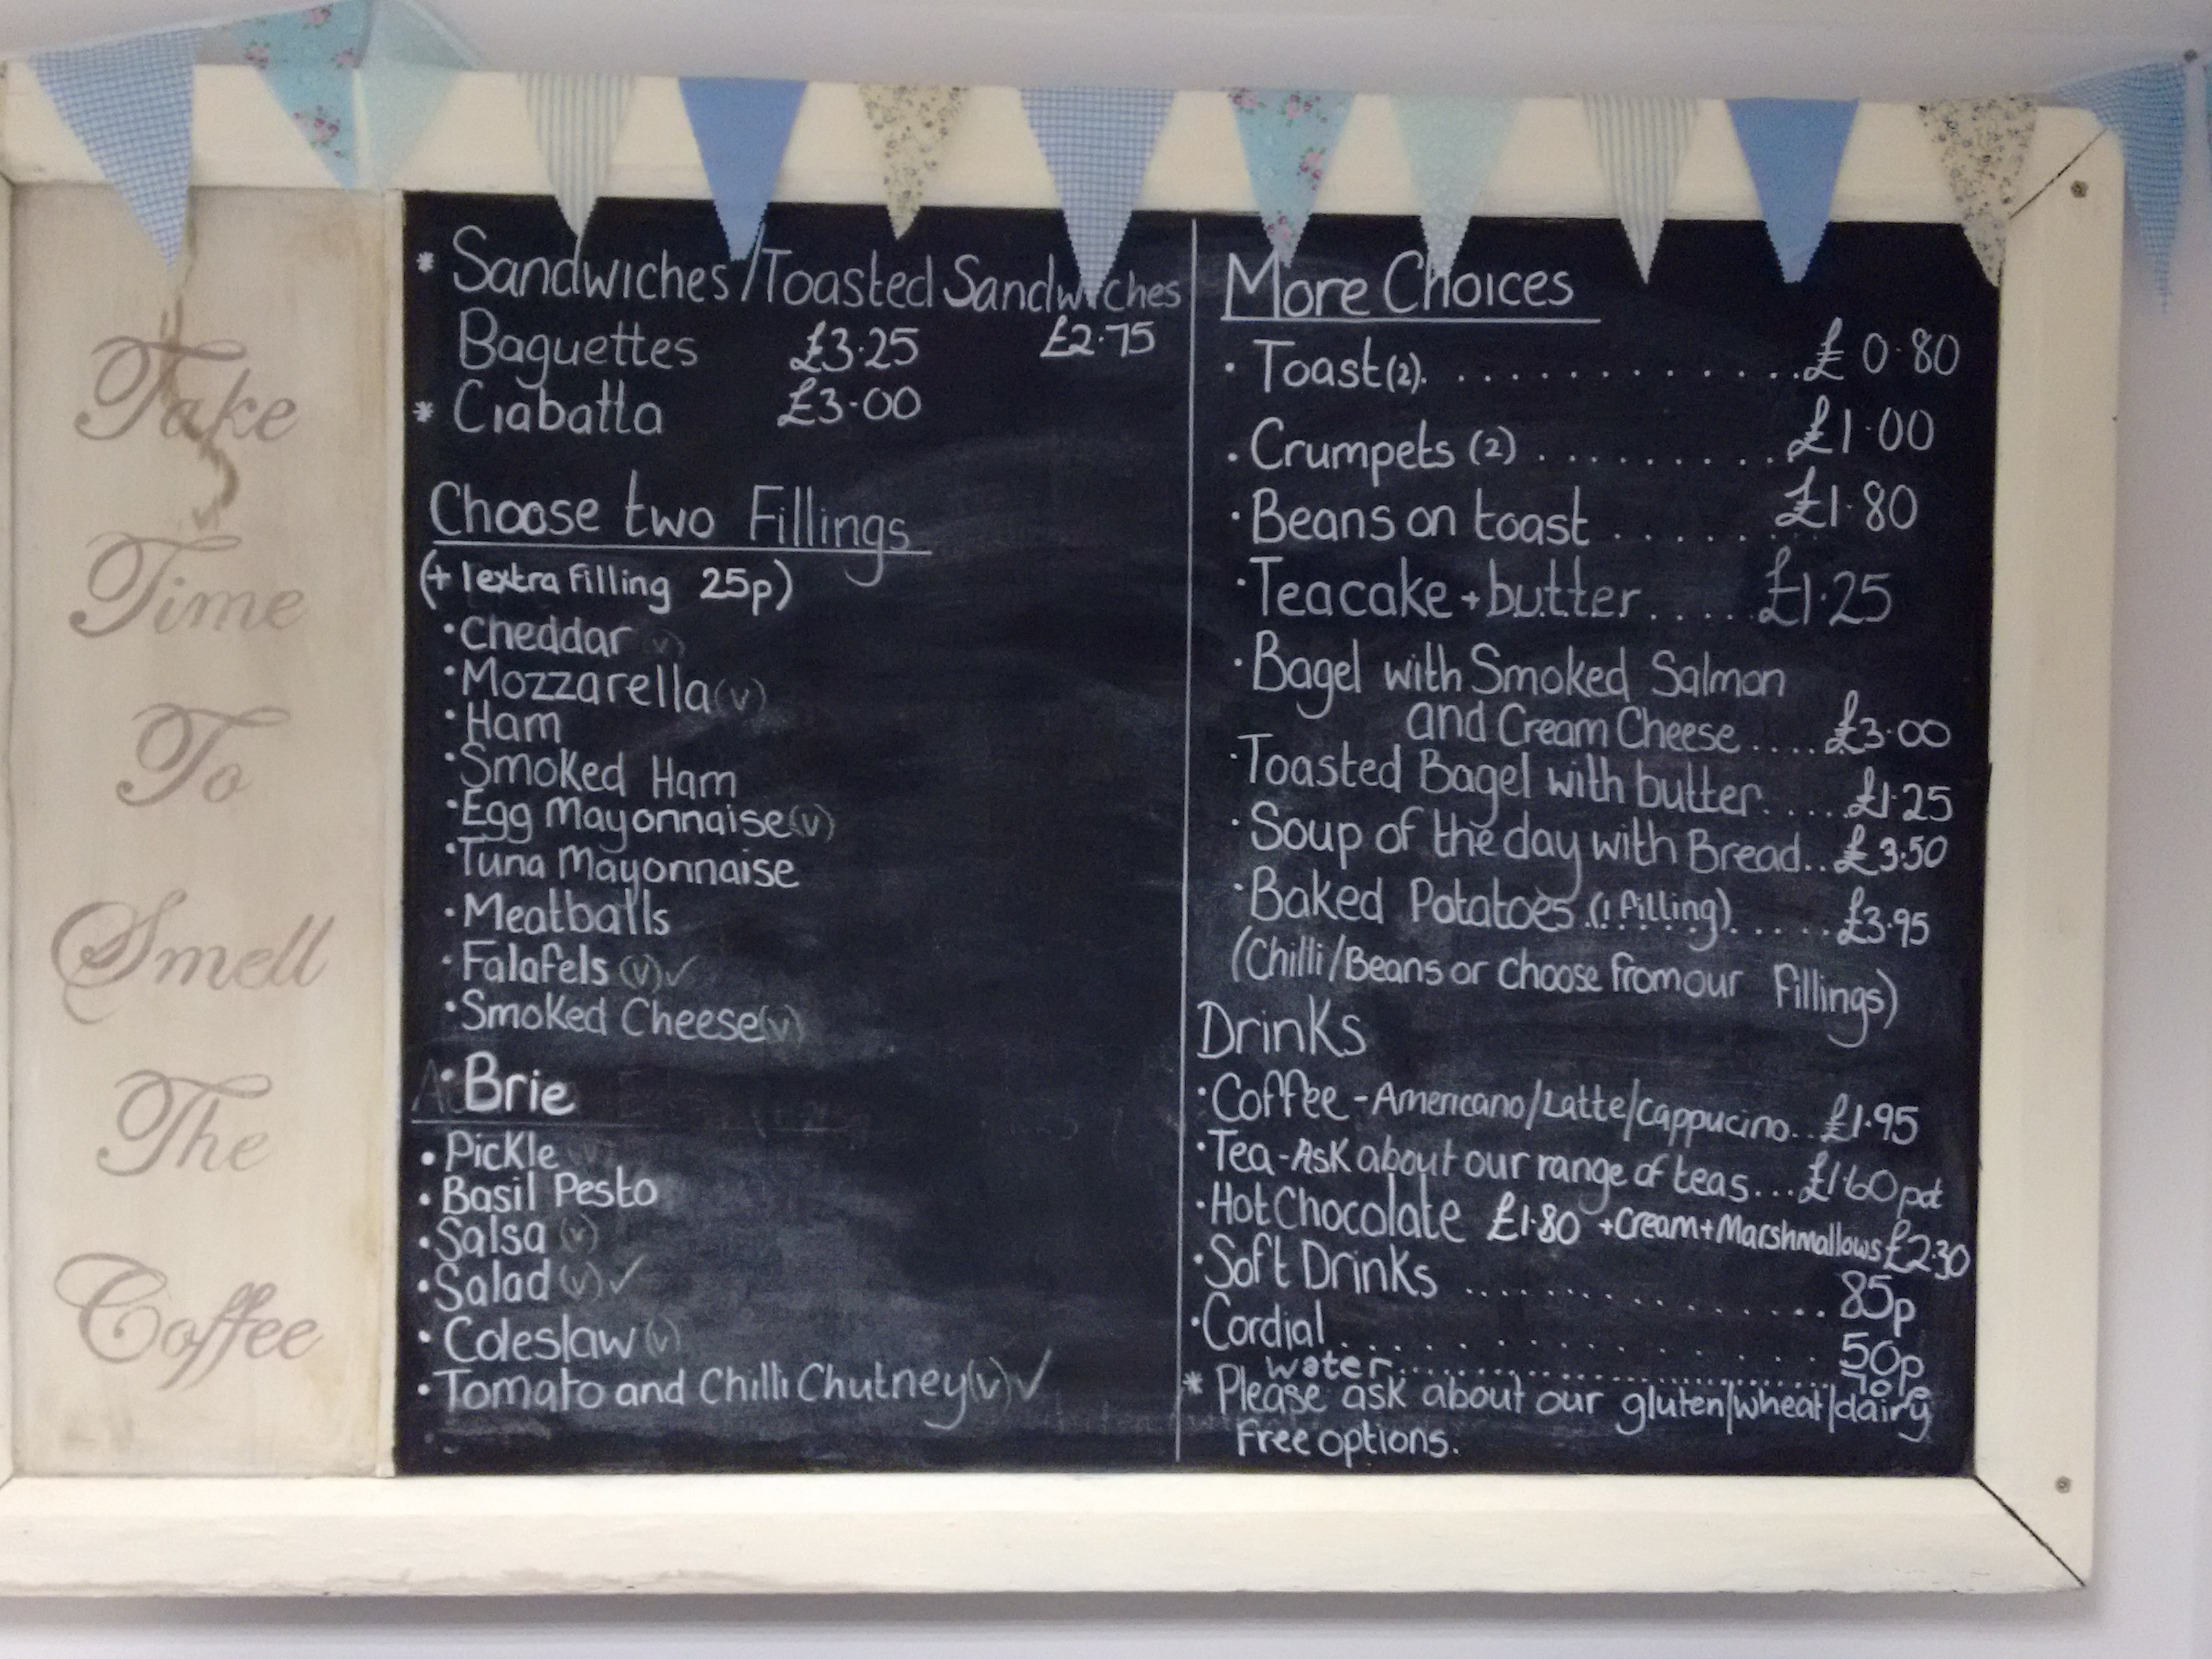 Take
Time
To
Smell
The
Coffee
* Sandwiches/Toasted Sandwiches
£2.75
Baguettes £3.25
* Ciabatta £3.00
Choose two Fillings
(+ 1 extra filling 25p)
• Cheddar (v)
• Mozzarella (v)
• Ham
• Smoked Ham
• Egg Mayonnaise (v)
• Tuna Mayonnaise
• Meatballs
• Falafels (v) ✓
• Smoked Cheese (v)
• Brie
• Pickle (v)
• Basil Pesto
• Salsa (v)
• Salad (v) ✓
• Coleslaw (v)
• Tomato and Chilli Chutney (v) ✓
More Choices
• Toast (2). ............. £0.80
• Crumpets (2) ......... £1.00
• Beans on toast ....... £1.80
• Teacake + butter ..... £1.25
• Bagel with Smoked Salmon
and Cream Cheese .... £3.00
• Toasted Bagel with butter ..... £1.25
• Soup of the day with Bread .. £3.50
• Baked Potatoes (1 filling) ..... £3.95
(Chilli/Beans or choose from our fillings)
Drinks
• Coffee - Americano/Latte/Cappucino .. £1.95
• Tea - Ask about our range of teas ... £1.60 pot
• Hot Chocolate £1.80 + Cream + Marshmallows £2.30
• Soft Drinks ............. 85p
• Cordial ............. 50p
water ..............
* Please ask about our gluten/wheat/dairy
free options.